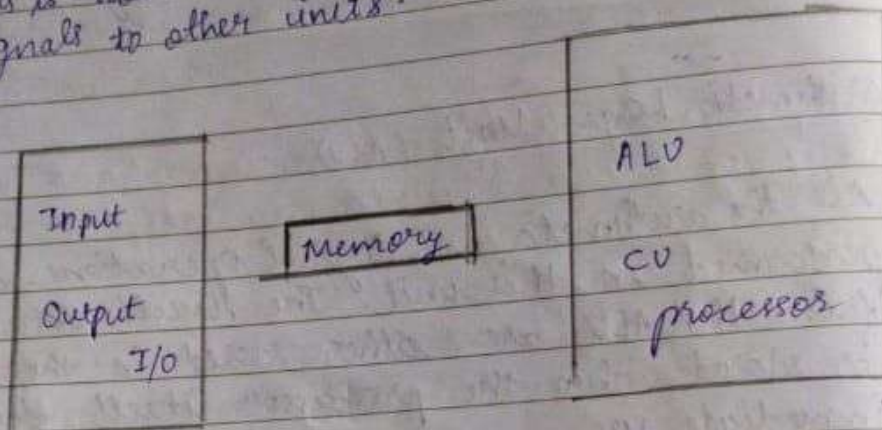 signals to other units.
Input
Output
I/O
Memory
ALU
CU
processor